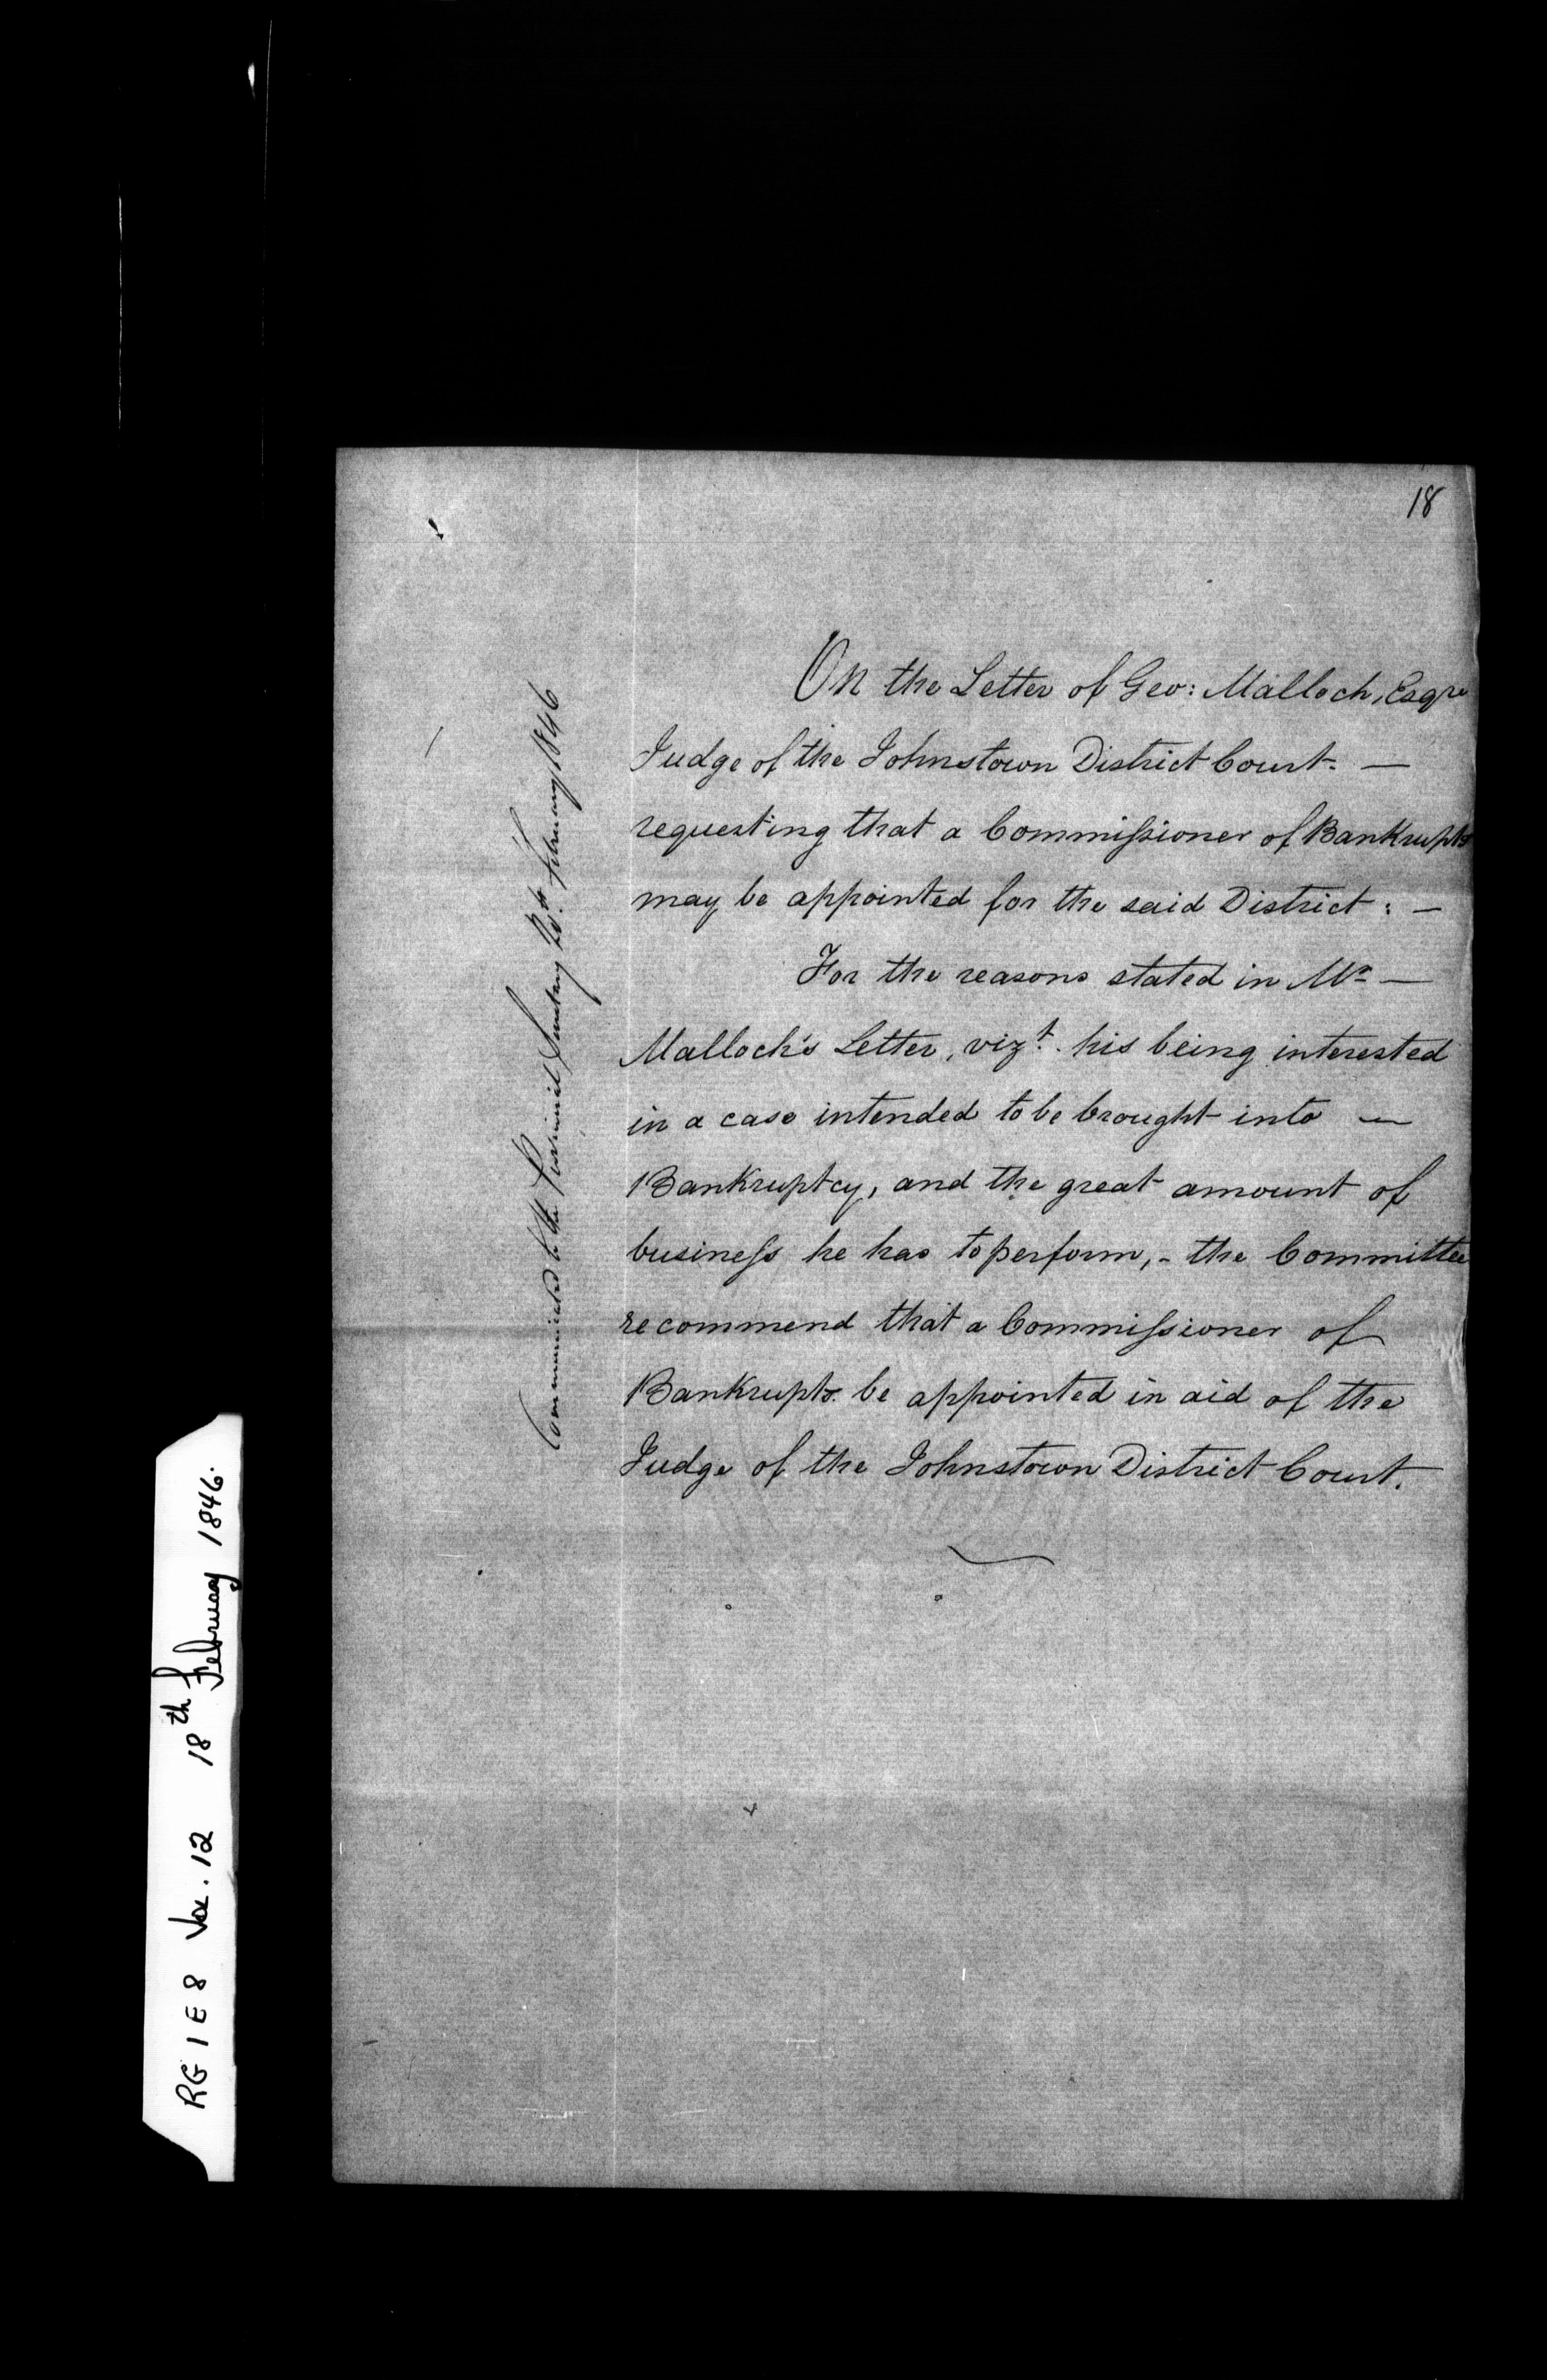 18
On the Letter of Geo: Malloch, Esqre
Judge of the Johnstown District Court. —
requesting that a Commissioner of Bankrupts
may be appointed for the said District: —
For the reasons stated in Mr —
Malloch's Letter, vizt. his being interested
in a case intended to be brought into —
Bankruptcy, and the great amount of
business he has to perform, - the Committee
recommend that a Commissioner of
Bankrupts be appointed in aid of the
Judge of the Johnstown District Court.
Communicated to the Provincial Secretary 20th February 1846
RG 1 E 8 Vol. 12 18th February 1846.